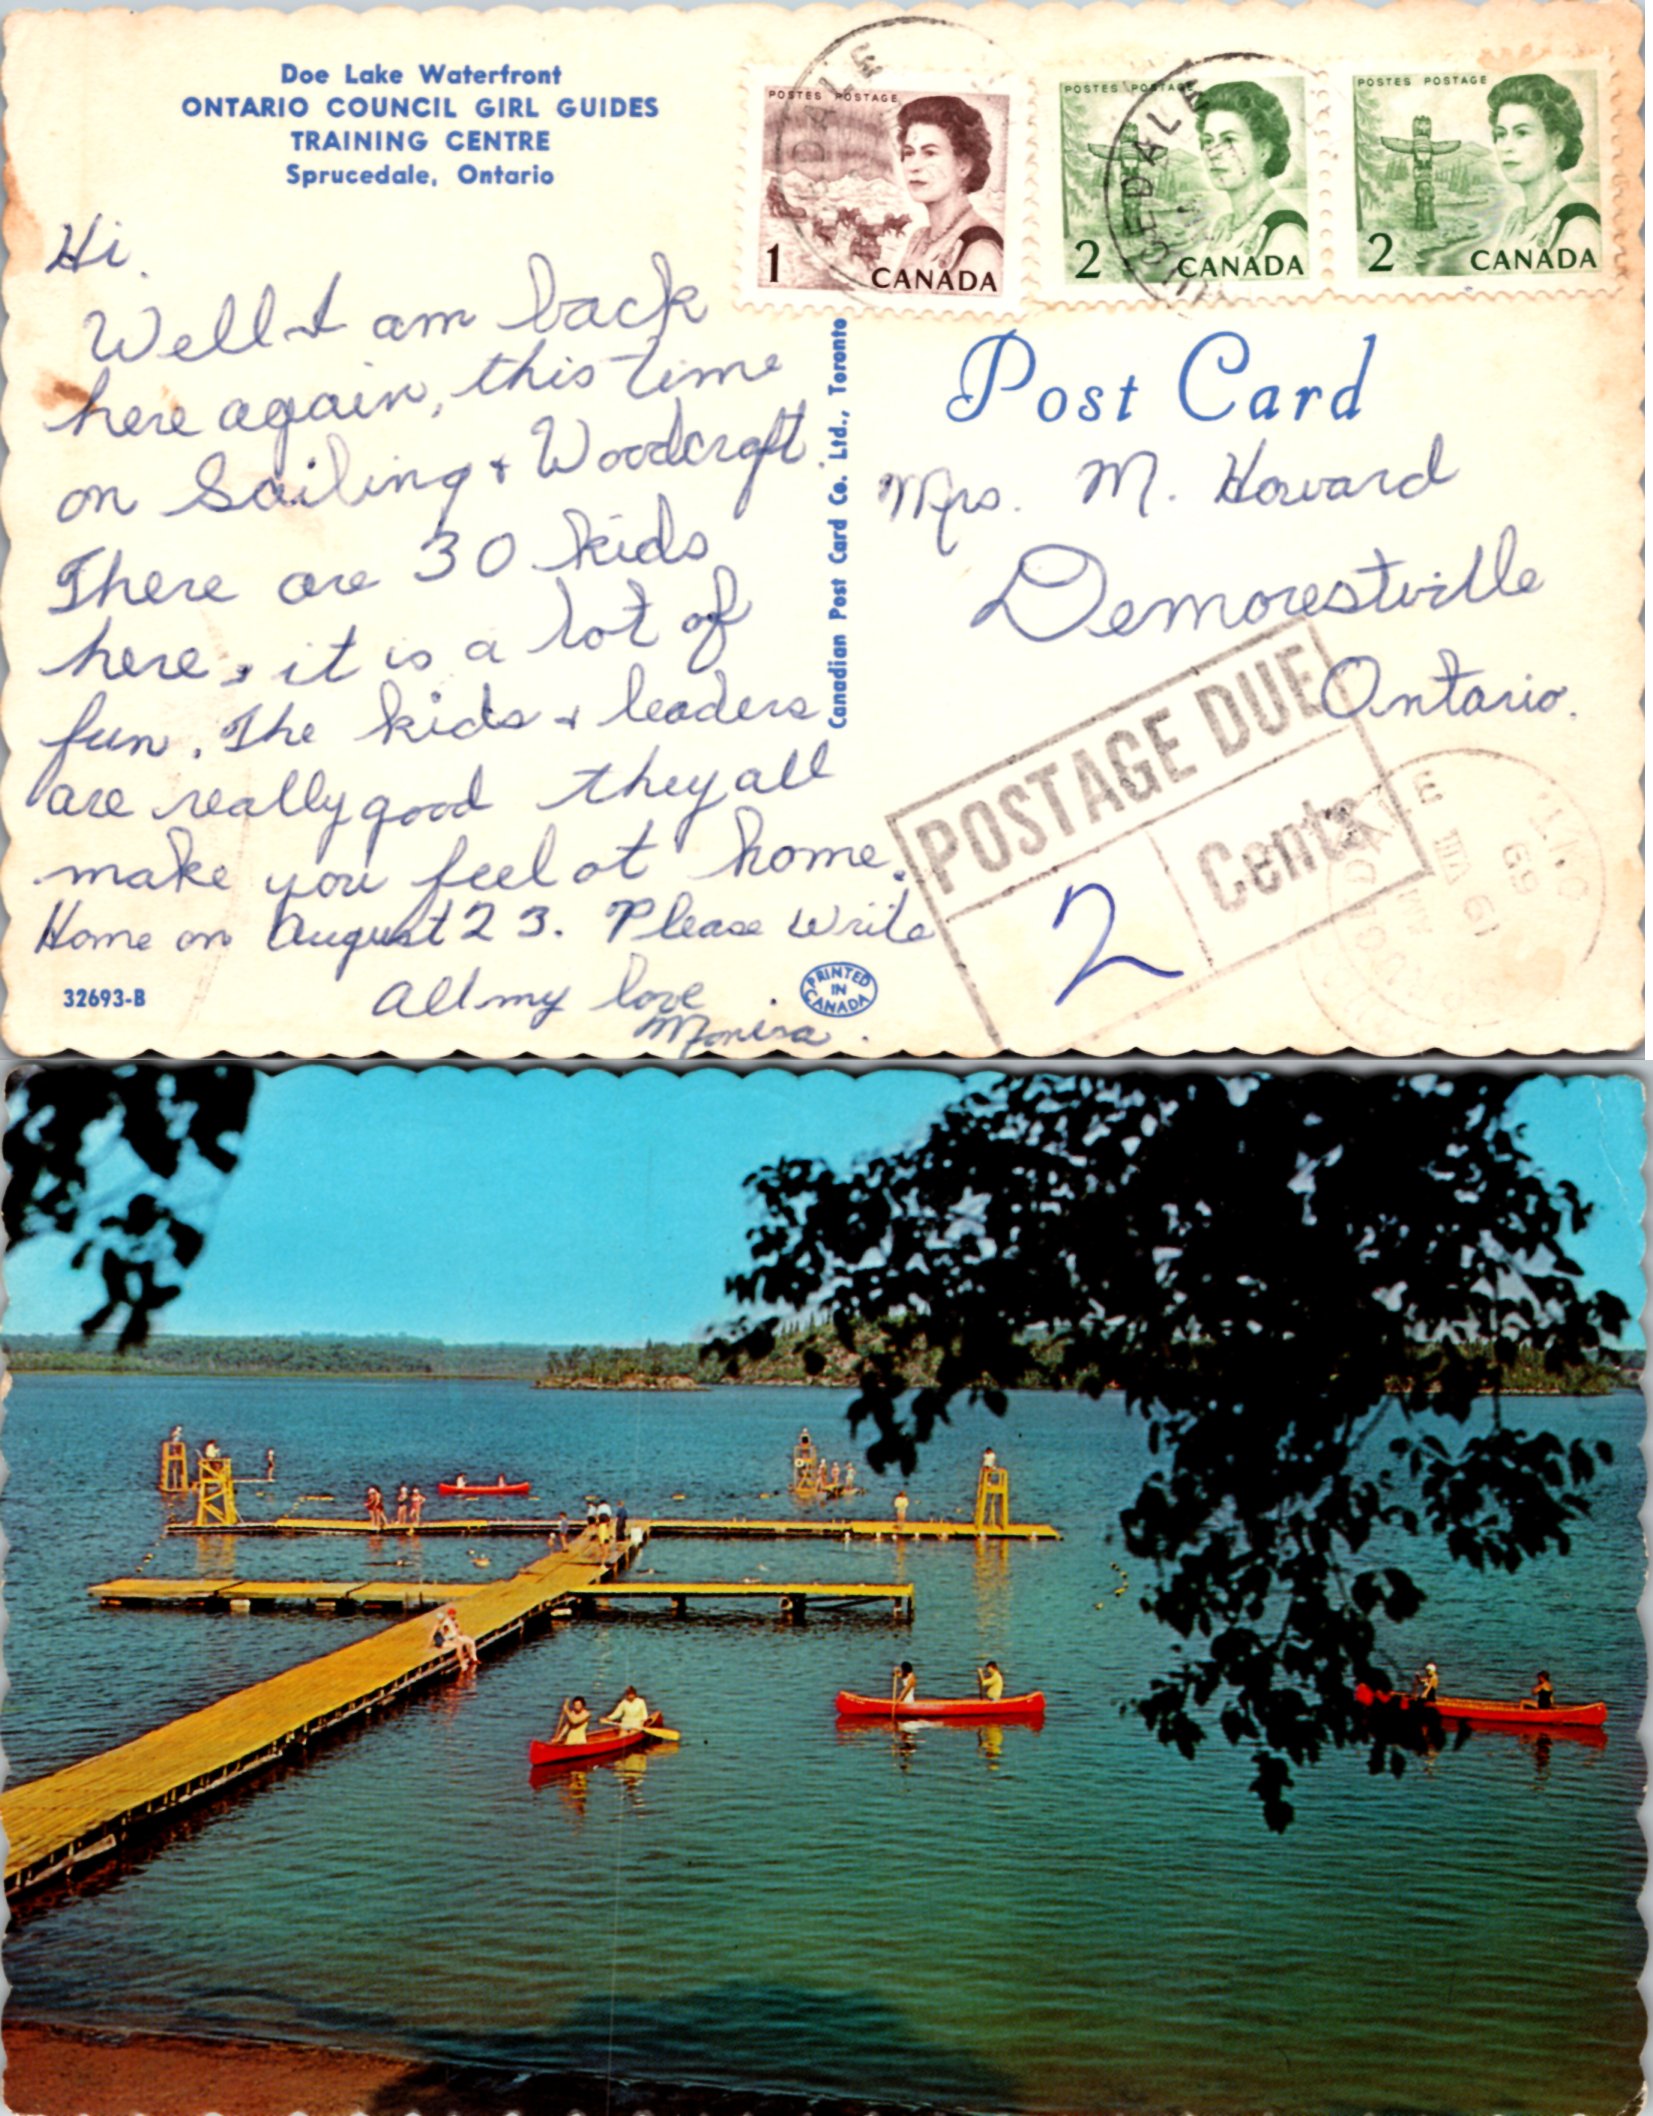 Doe Lake Waterfront
ONTARIO COUNCIL GIRL GUIDES
TRAINING CENTRE
Sprucedale, Ontario
POSTES POSTAGE
1 CANADA
POSTES POSTAGE
2 CANADA
POSTES POSTAGE
2 CANADA
Hi.
Well I am back
here again, this time
on Sailing & Woodcraft.
There are 30 kids
here, it is a lot of
fun. The kids & leaders
are really good they all
make you feel at home.
Home on August 23. Please Write
All my love
32693-B
PRINTED
IN
CANADA
Canadian Post Card Co. Ltd., Toronto
Post Card
Mrs. M. Howard
Demorestville
Ontario.
POSTAGE DUE
2 Cents